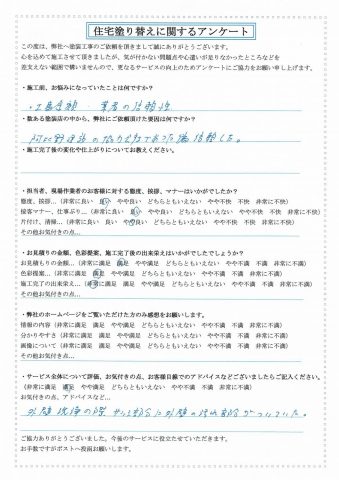 住宅塗り替えに関するアンケート
この度は、弊社へ塗装工事のご依頼を頂きまして誠にありがとうございます。
心を込めて施工させて頂きましたが、気が付かない問題点や心遣いが足りなかったところなどを
差支えない範囲で構いませんので、更なるサービスの向上のためアンケートにご協力をお願い申し上げます。
・施工前、お悩みになっていたことは何ですか?
・工事金額 ・業者の信頼性
・数ある塗装店の中から、弊社にご依頼頂けた要因は何ですか?
の協力店であった為依頼した。
・施工完了後の変化や仕上がりについてお教えください。
・担当者、現場作業者のお客様に対する態度、挨拶、マナーはいかがでしたか?
態度、挨拶…（非常に良い 良い やや良い どちらともいえない やや不快 不快 非常に不快）
接客マナー、仕事ぶり…（非常に良い 良い やや良い どちらともいえない やや不快 不快 非常に不快）
片付け、清掃…（非常に良い 良い やや良い どちらともいえない やや不快 不快 非常に不快）
その他お気付きの点…
・お見積りの金額、色彩提案、施工完了後の出来栄えはいかがでしょうか?
お見積りの金額…（非常に満足 満足 やや満足 どちらともいえない やや不満 不満 非常に不満）
色彩提案…（非常に満足 満足 やや満足 どちらともいえない やや不満 不満 非常に不満）
施工完了の出来栄え…（非常に満足 満足 やや満足 どちらともいえない やや不満 不満 非常に不満）
その他お気付きの点…
・弊社のホームページをご覧いただけた方のみ感想をお願いします。
情報の内容（非常に満足 満足 やや満足 どちらともいえない やや不満 不満 非常に不満）
分かりやすさ（非常に満足 満足 やや満足 どちらともいえない やや不満 不満 非常に不満）
画像について（非常に満足 満足 やや満足 どちらともいえない やや不満 不満 非常に不満）
その他お気付きの点…
・サービス全体について評価、お気付きの点、お客様目線でのアドバイスなどございましたらご記入ください。
（非常に満足 満足 やや満足 どちらともいえない やや不満 不満 非常に不満）
お気付きの点、アドバイスなど…
外壁洗浄の際、サッシ部分に外壁の汚れ部分がついていた。
ご協力ありがとうございました。今後のサービスに役立たせていただきます。
お手数ですがポストへ投函お願いします。